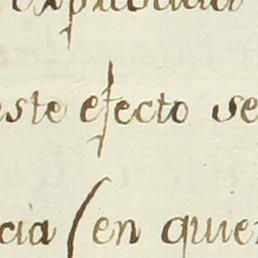 este efecto se
cia (en quien